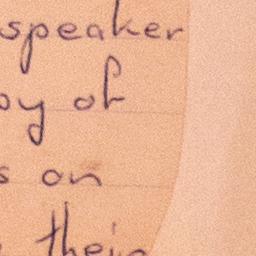 speaker
of
on
their